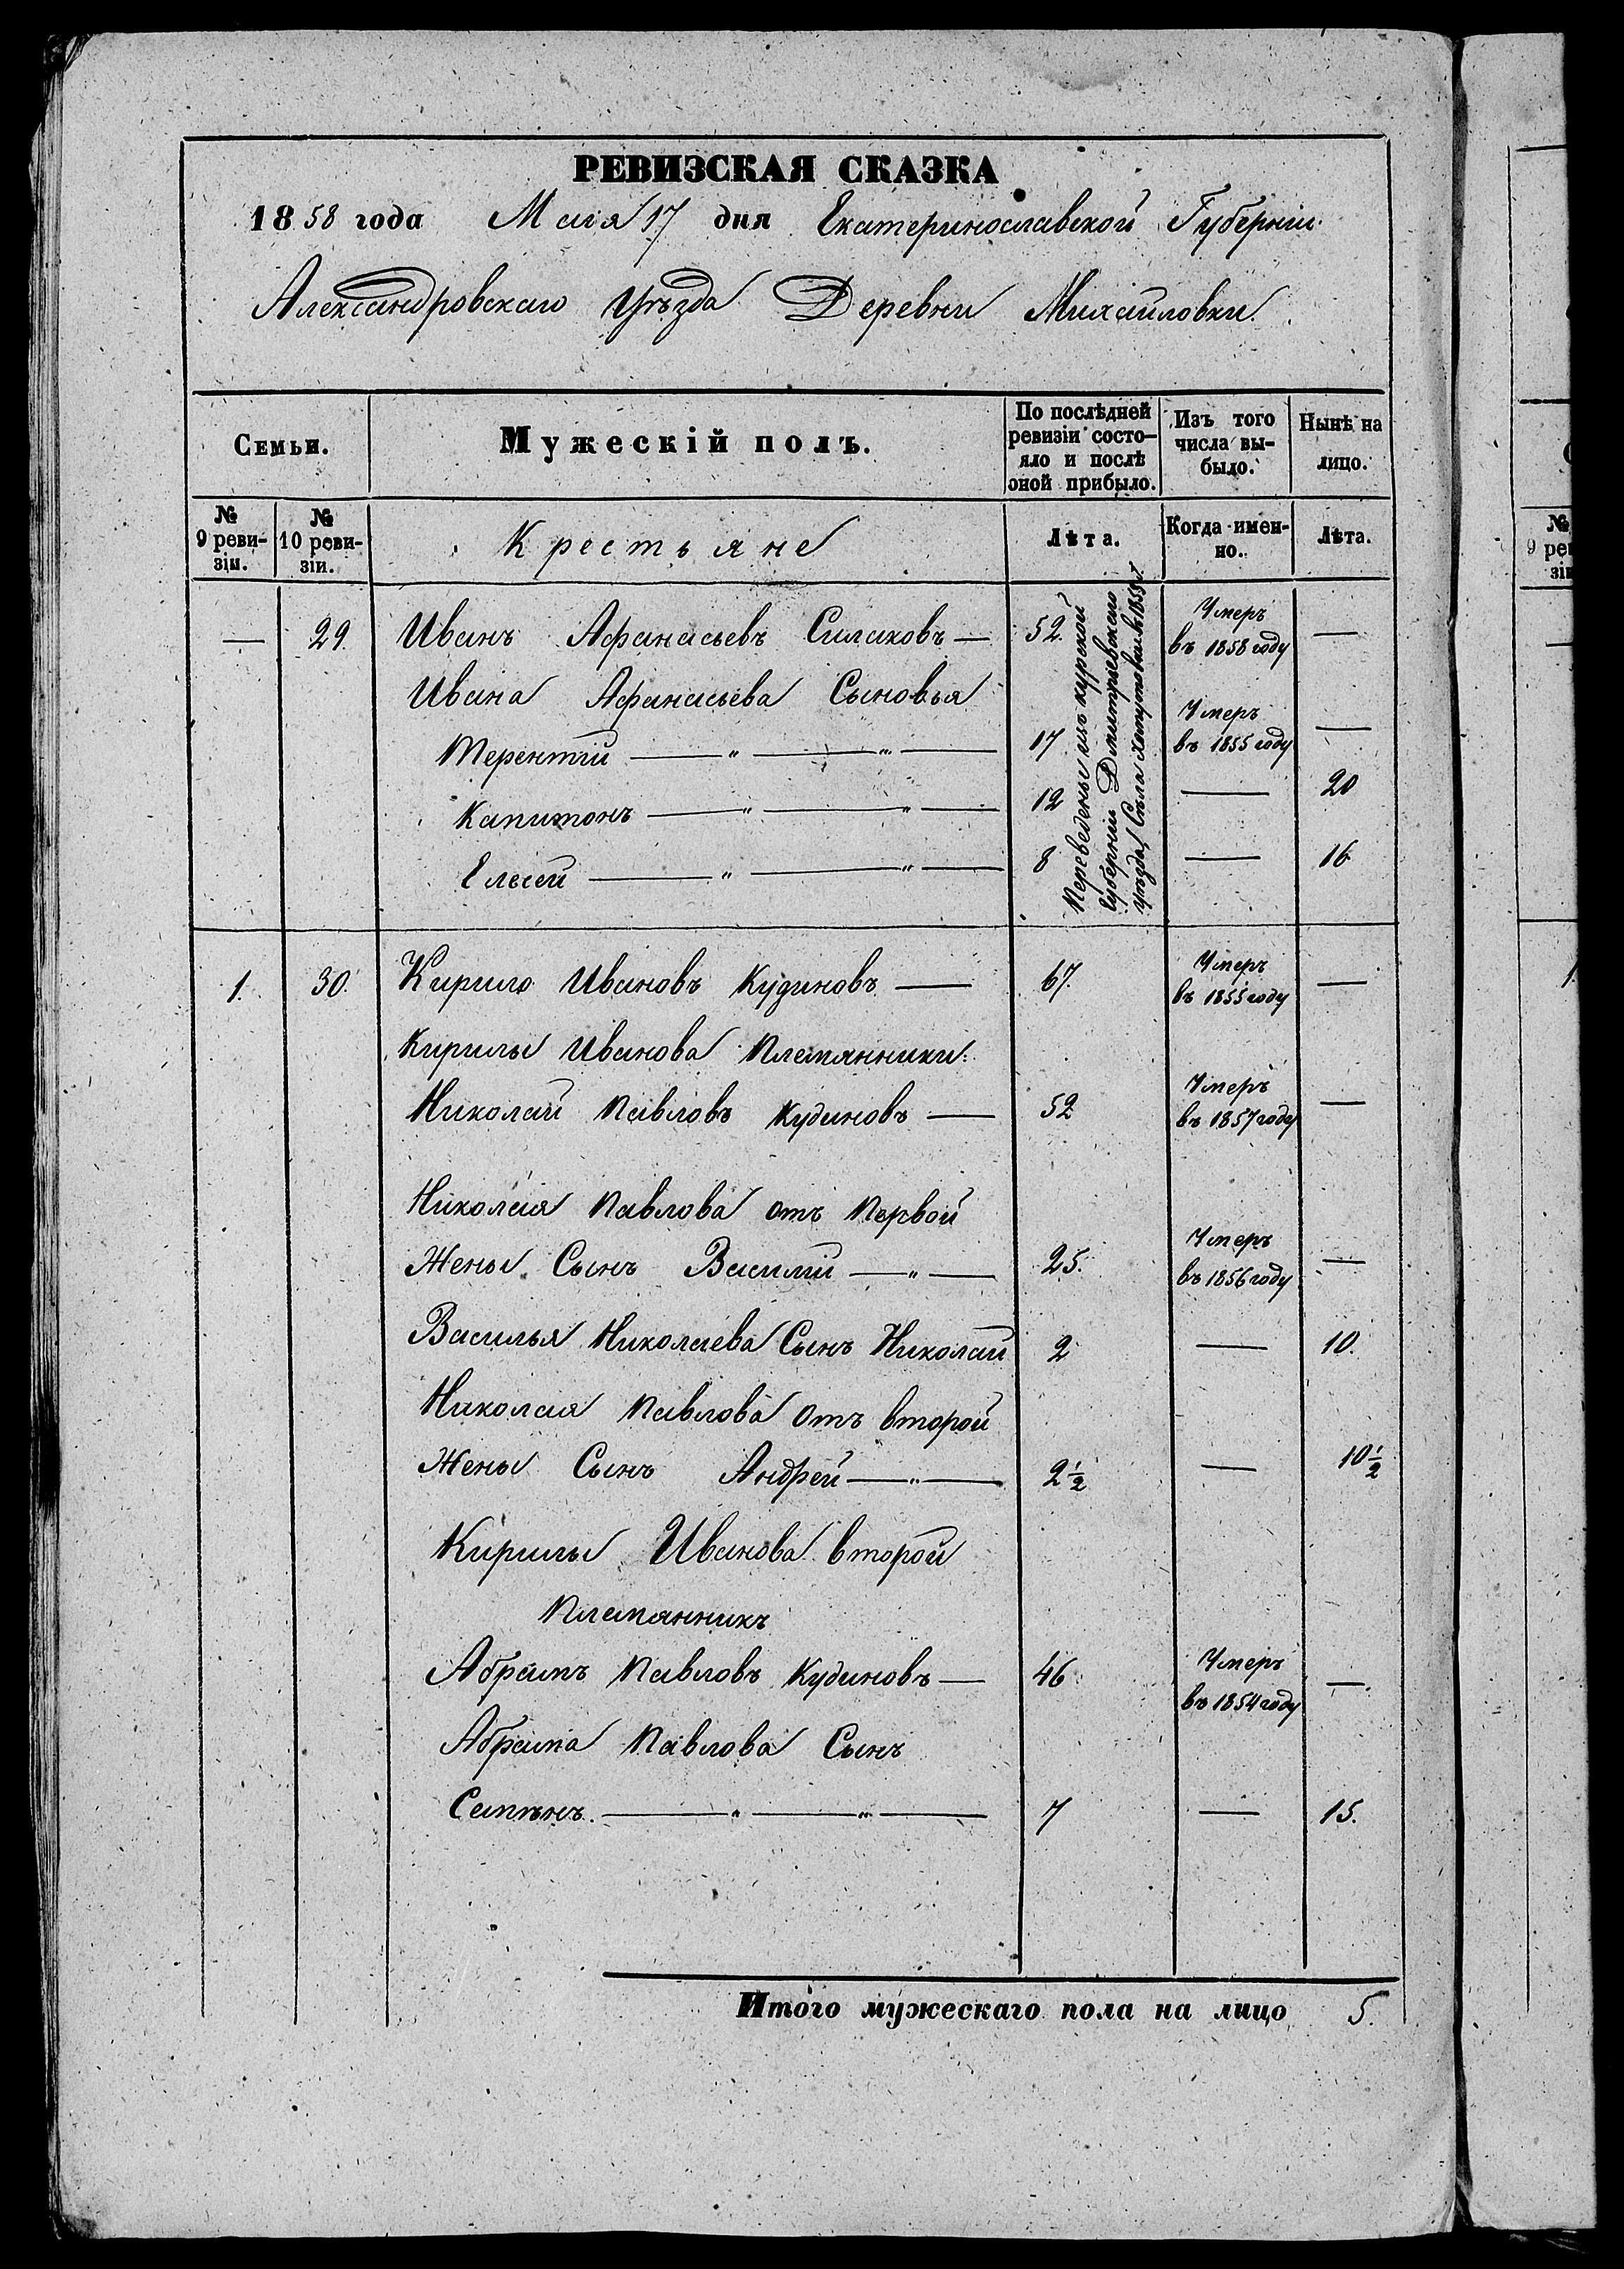 РЕВИЗСКАЯ СКАЗКА
1858 года Мая 17 дня Екатеринославской Губерніи
Александровскаго Уѣзда Деревни Михайловки
Семьи.
Мужескій полъ.
По послѣдней ревизіи состо-
яло и послѣ
оной прибыло.
Изъ того
числа вы-
было.
Нынѣ на
лицо.
№
9 реви-
зіи.
№
10 реви-
зіи.
Крестьяне
Лѣта.
Когда имен-
но.
Лѣта.
— 29. Иванъ Афанасьевъ Силаковъ — 52. Умеръ въ 1858 году —
Ивана Афанасьева Сыновья
Терентій — „ — „ — 17 Умеръ въ 1855 году —
Капитонъ — „ — „ — 12 — 20
Елисей — „ — „ — 8 — 16
Переведены изъ курской
Губерніи Дмитріевскаго
уѣзда Сѣла
1. 30. Кирило Ивановъ Кудиновъ — 67. Умеръ въ 1855 году —
Кирилы Иванова Племянники:
Николай Павловъ Кудиновъ — 52 Умеръ въ 1857 году —
Николая Павлова отъ Первой
Жены Сынъ Василій — „ — 25. Умеръ въ 1856 году —
Василья Николаева Сынъ Николай 2 — 10.
Николая Павлова отъ второй
Жены Сынъ Андрей — „ — 2½ — 10½
Кирилы Иванова второй
Племянникъ
Абрамъ Павловъ Кудиновъ — 46 Умеръ въ 1854 году —
Абрама Павлова Сынъ
Семѣнъ. — „ — „ — 7 — 15.
Итого мужескаго пола на лицо 5.
№
9 рев
зі
1.